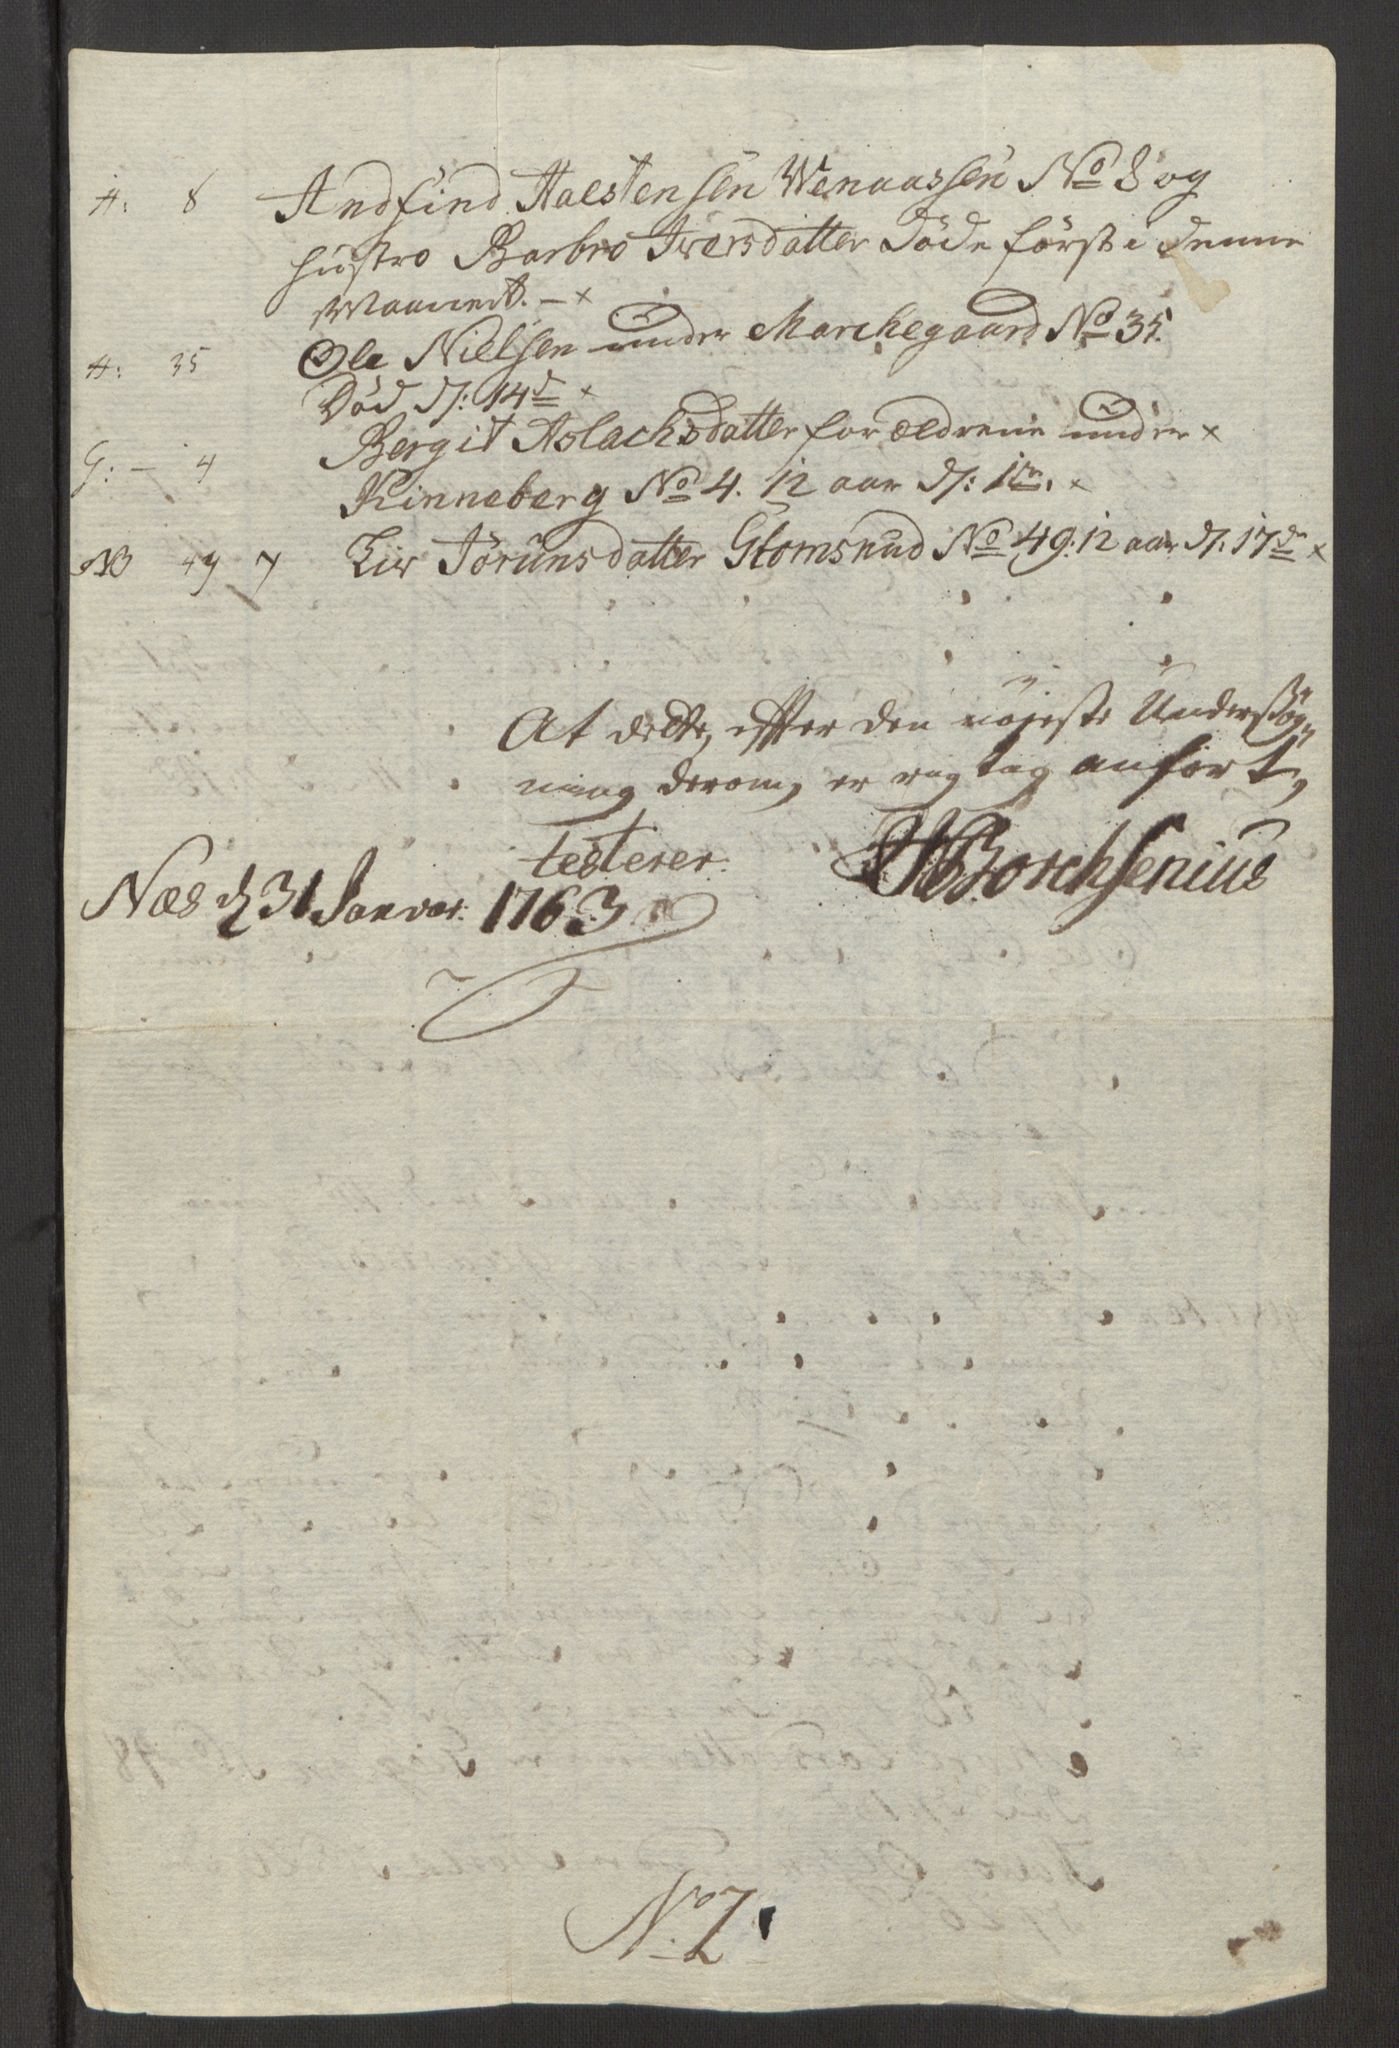 H: 8 Andfind Halstensen Wenaassen No 8 og
hustro Barbro Iversdatter döde först i denne
Maanet. - x
H: 35 Ole Nielsen under Marchegaard No 35.
Död d: 14de x
G: - 4 Bergit Aslachsdatter forældrene under x
Kinneberg No 4. 12 aar d: 1te. x
NB 49 7 Liv Jörunsdatter Glomsrud No 49. 12 aar d. 17de x
At dette, efter den nöjeste Undersög-
ning derom, er rigtig anfört,
testerer.
HBorchsenius
Næs d 31 Januar: 1763
No 2